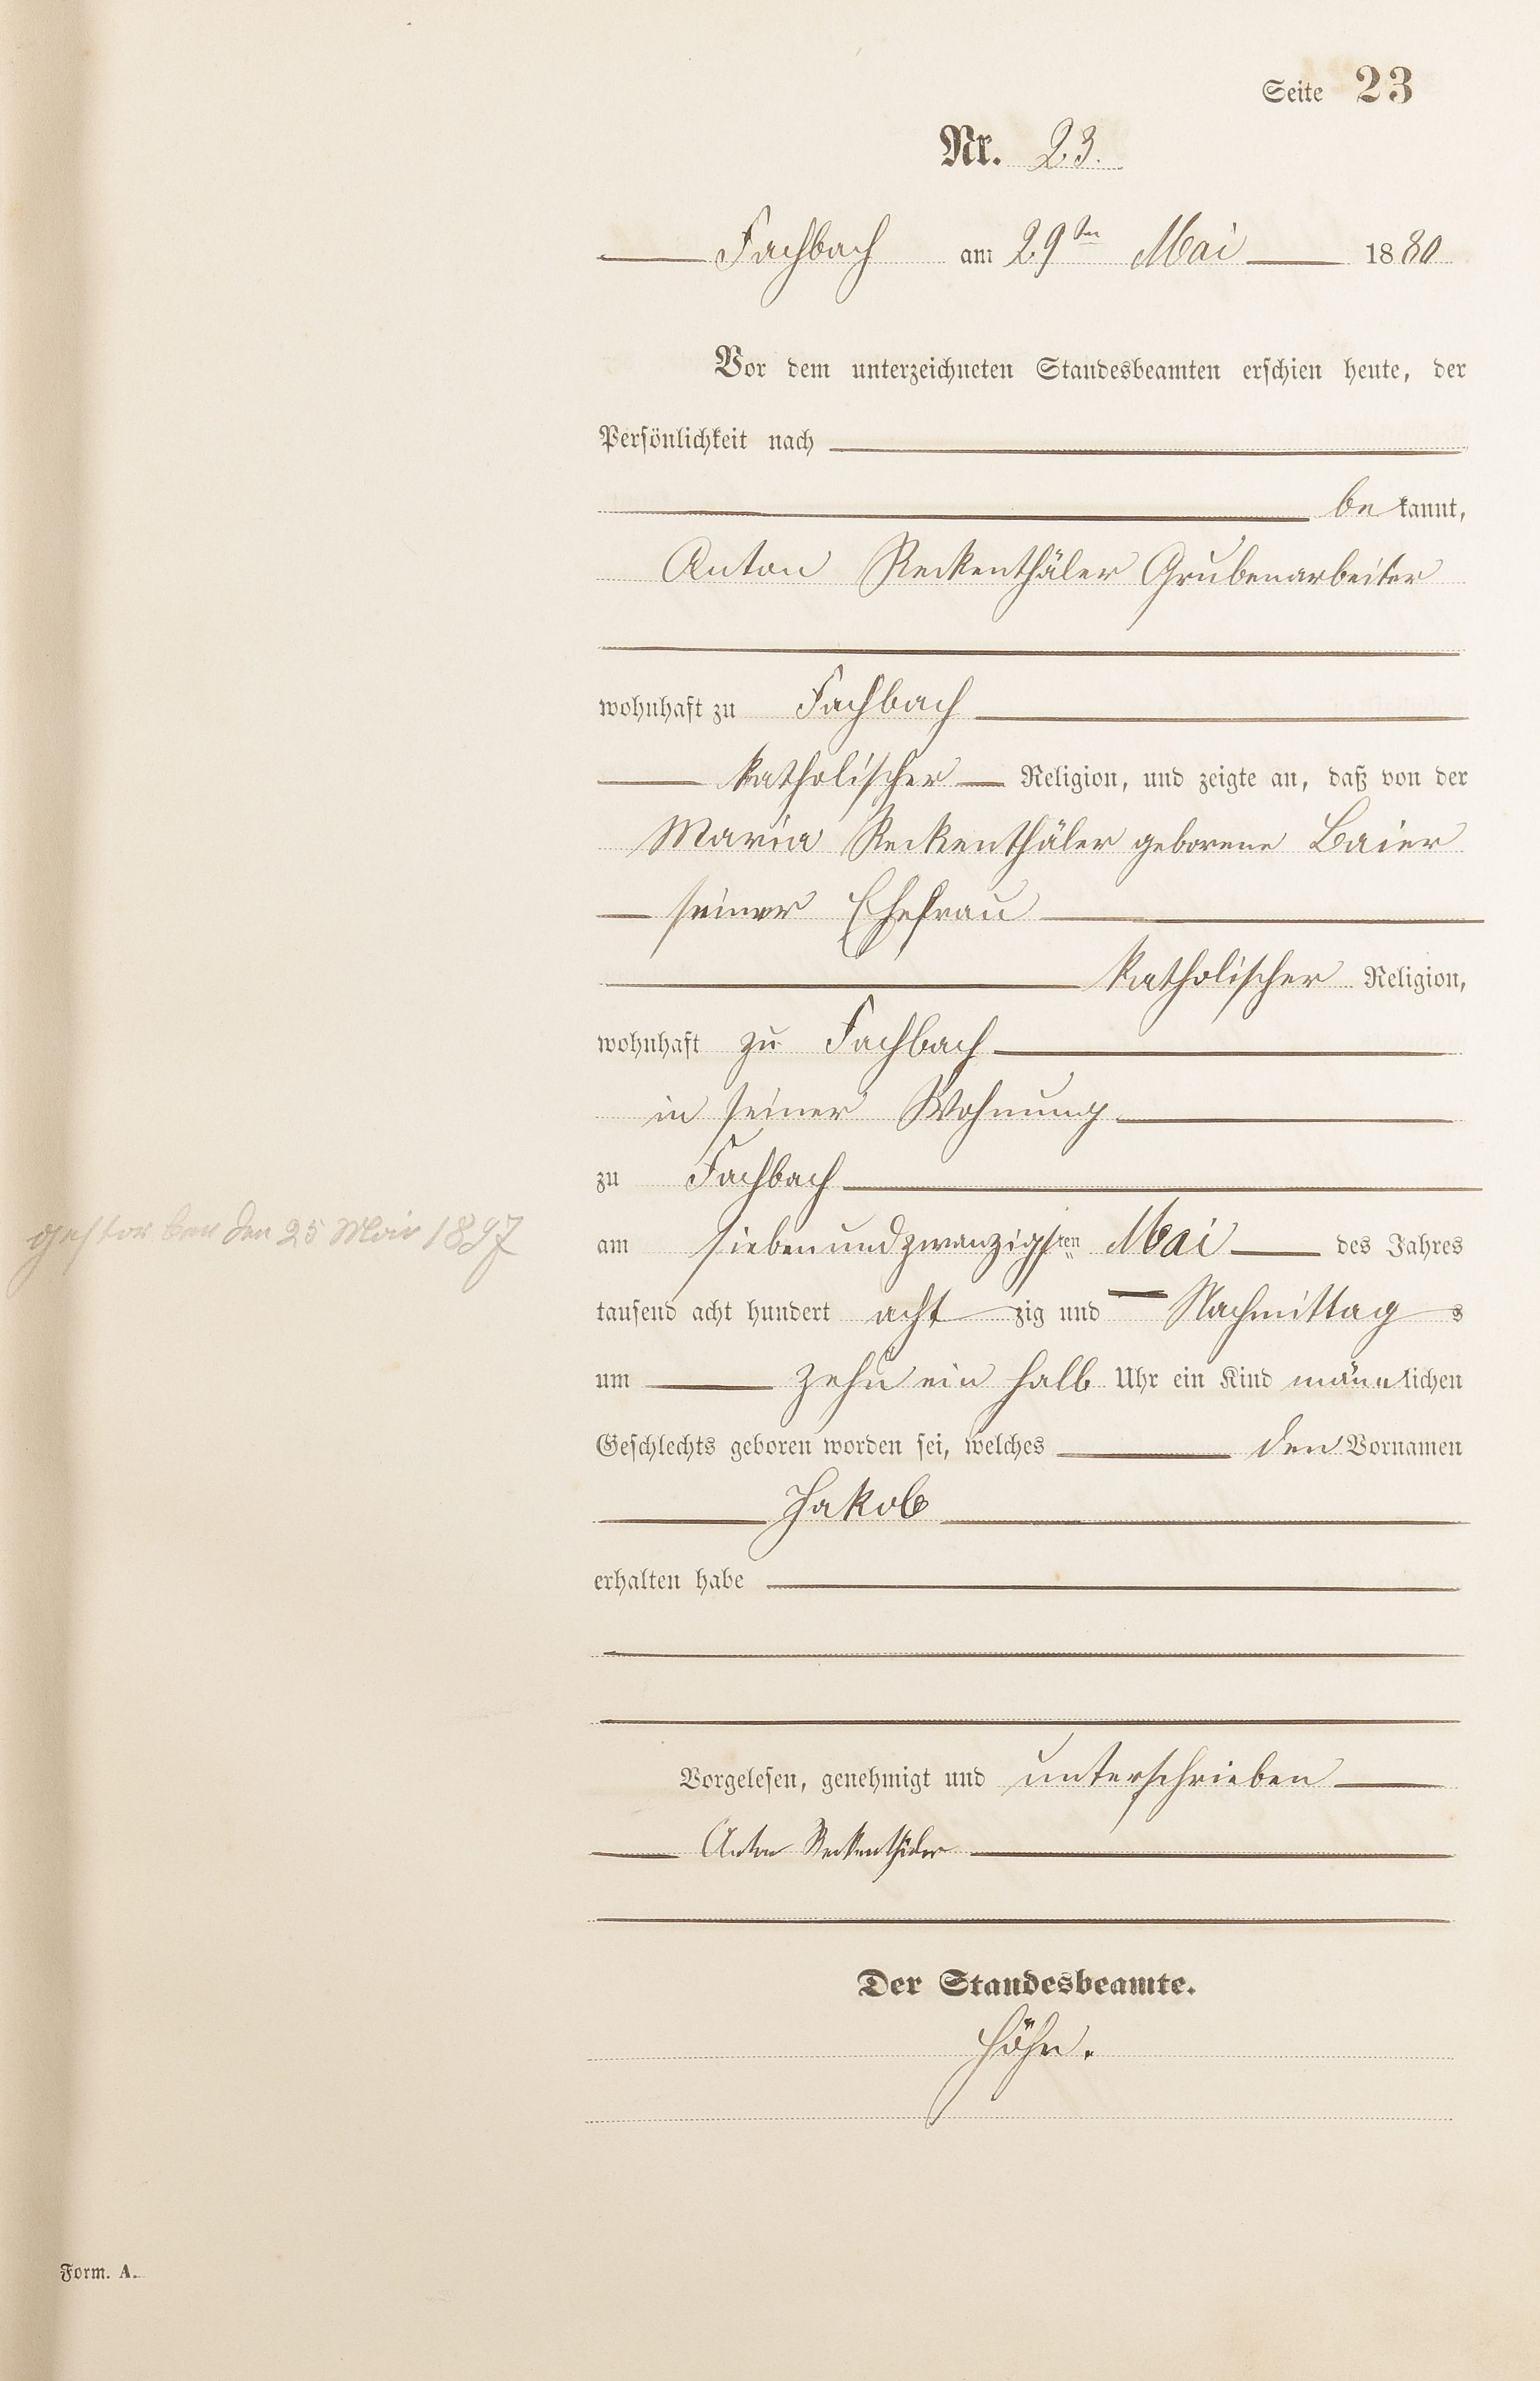 Seite 23
Nr. 23.
Fachbach am 29ten Mai 1880
Vor dem unterzeichneten Standesbeamten erschien heute, der
Persönlichkeit nach
be kannt,
Anton Reckenthäler Grubenarbeiter
wohnhaft zu Fachbach
katholischer Religion, und zeigte an, daß von der
Maria Reckenthäler geborene Baier
seiner Ehefrau
katholischer Religion,
wohnhaft zu Fachbach
in seiner Wohnung
zu Fachbach
gestorben den 25 Mai 1897
am siebenundzwanzigsten Mai des Jahres
tausend acht hundert achtzig und Nachmittags
um zehn ein halb Uhr ein Kind männlichen
Geschlechts geboren worden sei, welches den Vornamen
Jakob
erhalten habe
Vorgelesen, genehmigt und unterschrieben
Anton Reckenthäler
Der Standesbeamte.
Höhn.
Form. A.